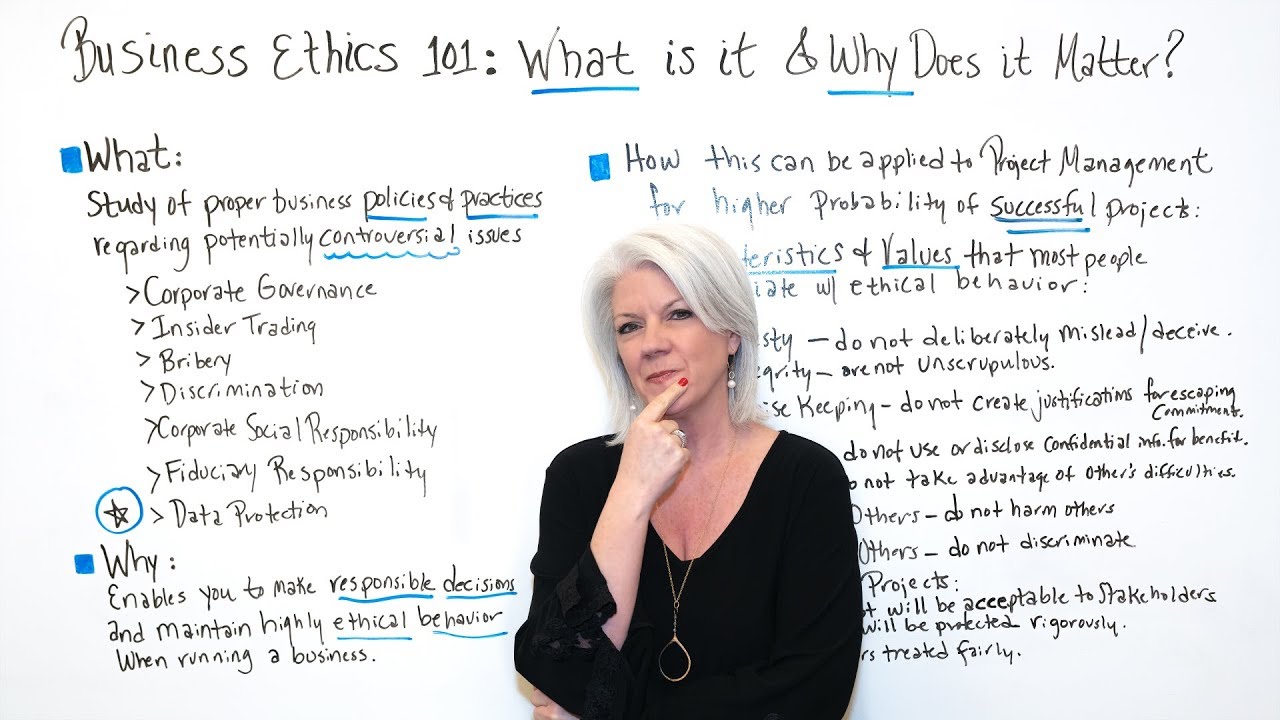 Business Ethics 101: What is it & Why Does it Matter?
What:
Study of proper business policies & practices
regarding potentially controversial issues
> Corporate Governance
> Insider Trading
> Bribery
> Discrimination
> Corporate Social Responsibility
> Fiduciary Responsibility
> Data Protection
Why:
Enables you to make responsible decisions
and maintain highly ethical behavior
When running a business.
How this can be applied to Project Management
for higher Probability of Successful projects:
teristics & Values that most people
iate w/ ethical behavior:
sty – do not deliberately mislead/deceive.
egrity – are not unscrupulous.
ise Keeping – do not create justifications for escaping
Commitment.
do not use or disclose confidential info. for benefit.
o not take advantage of other's difficulties.
Others – do not harm others
Others – do not discriminate
Projects:
t will be acceptable to Stakeholders
will be protected rigorously.
rs treated fairly.